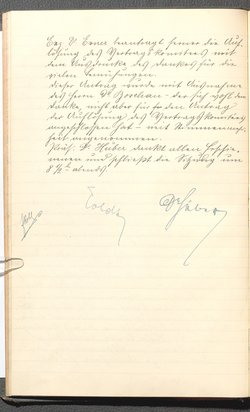 Exz. v. Exner beantragt ferner die Auf-
lösung des Vortragskomitees mit
dem Ausdrucke des Dankes für die
vielen Bemühungen.
Dieser Antrag wurde mit Ausnahme
des Herrn Dr. – der sich wohl dem
Danke, nicht aber für den Antrag
der Auflösung des Vortragskomitees
ausgesprochen hat – mit Stimmenein-
heit angenommen.
Präs. Dr. Huber dankt allen Erschie-
nenen und schließt die Sitzung um
8 h abends.
Toldt
Dr Huber